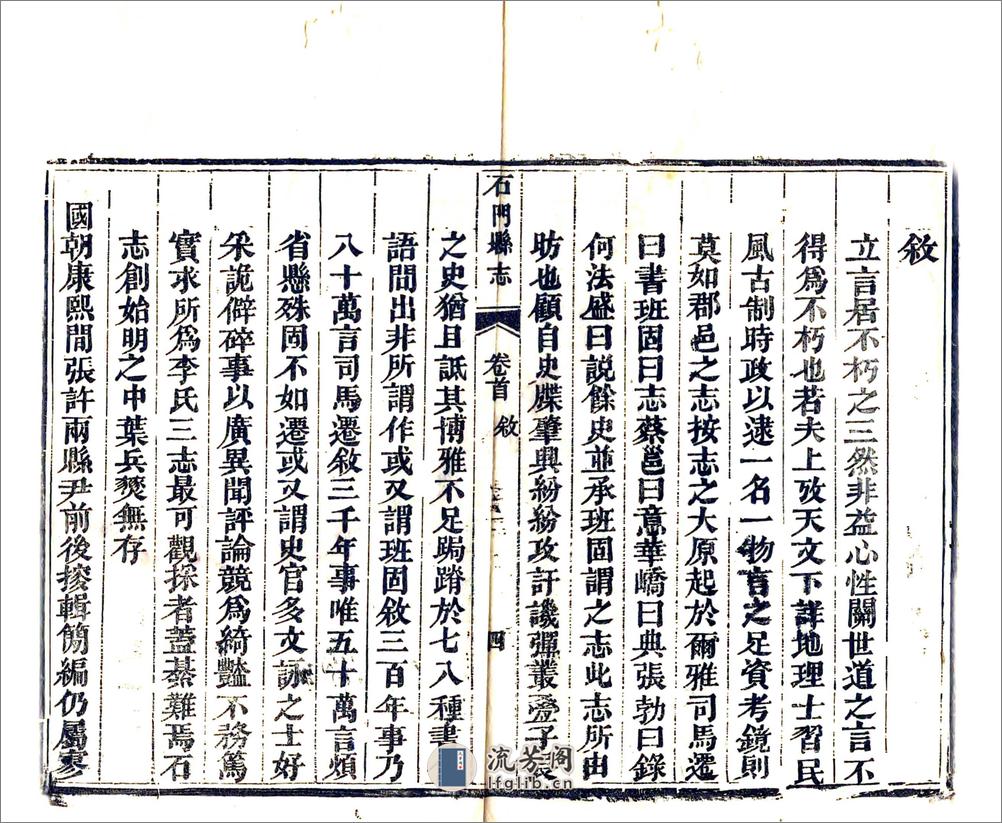 敘
立言居不朽之三然非益心性關世道之言不
得爲不朽也若夫上攷天文下詳地理士習民
風古制時政以逮一名一物言之足資考鏡則
莫如郡邑之志按志之大原起於爾雅司馬遷
曰書班固曰志蔡邕曰意華嶠曰典張勃曰錄
何法盛曰說餘史並承班固謂之志此志所由
昉也顧自史牒肇興紛紛攻訐譏彈叢疊子長
石門縣志
卷首
敘
四
之史猶且詆其博雅不足跼蹐於七八種書
語間出非所謂作或又謂班固敘三百年事乃
八十萬言司馬遷敘三千年事唯五十萬言煩
省懸殊固不如遷或又謂史官多文詠之士好
采詭僻碎事以廣異聞評論競爲綺豔不務篤
實求所爲李氏三志最可觀採者蓋綦難焉石
志創始明之中葉兵燹無存
國朝康熙間張許兩縣尹前後擦輯簡編仍屬寥
流芳阁
lfglib.cn